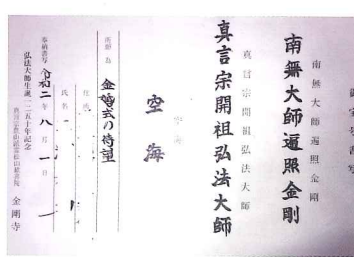 南無大師遍照金剛
南無大師遍照金剛
真言宗開祖弘法大師
真言宗開祖弘法大師
空海
空海
為
金婚式の待望
住所
氏名
奉納書写 令和二年八月一日
弘法大師生誕一二五十年記念
金剛寺